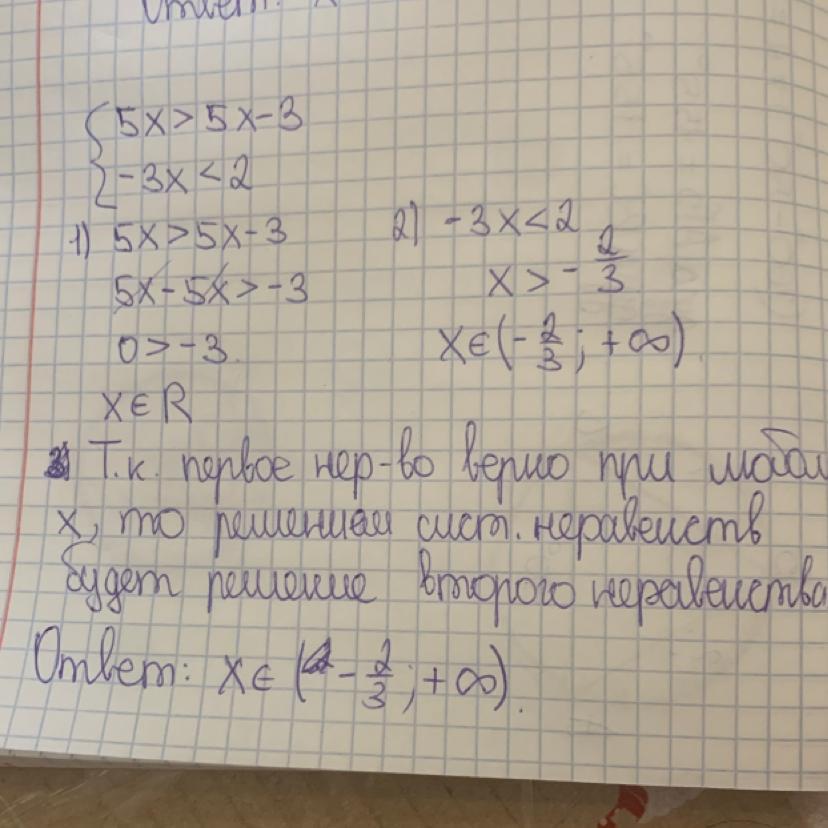 Ответ:
{ 5x > 5x-3
-3x < 2
1) 5x > 5x-3
5x-5x > -3
0 > -3.
x∈R
2) -3x < 2
x > -2/3
x∈(-2/3; +∞).
Т.к. первое нер-во верно при любом
x, то решением сист. неравенств
будет решение второго неравенства
Ответ: x∈(-2/3; +∞).